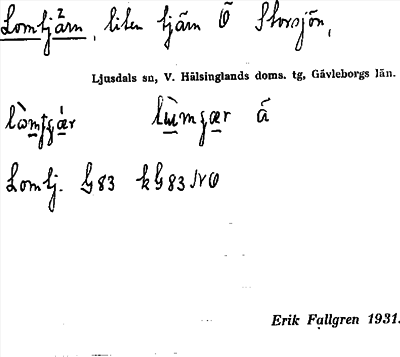 Lomtjärn, liten tjärn Ö Storsjön,
Ljusdals sn, V. Hälsinglands doms. tg, Gävleborgs län.
Lomtj. G83 kG83NO
Erik Fallgren 1931.